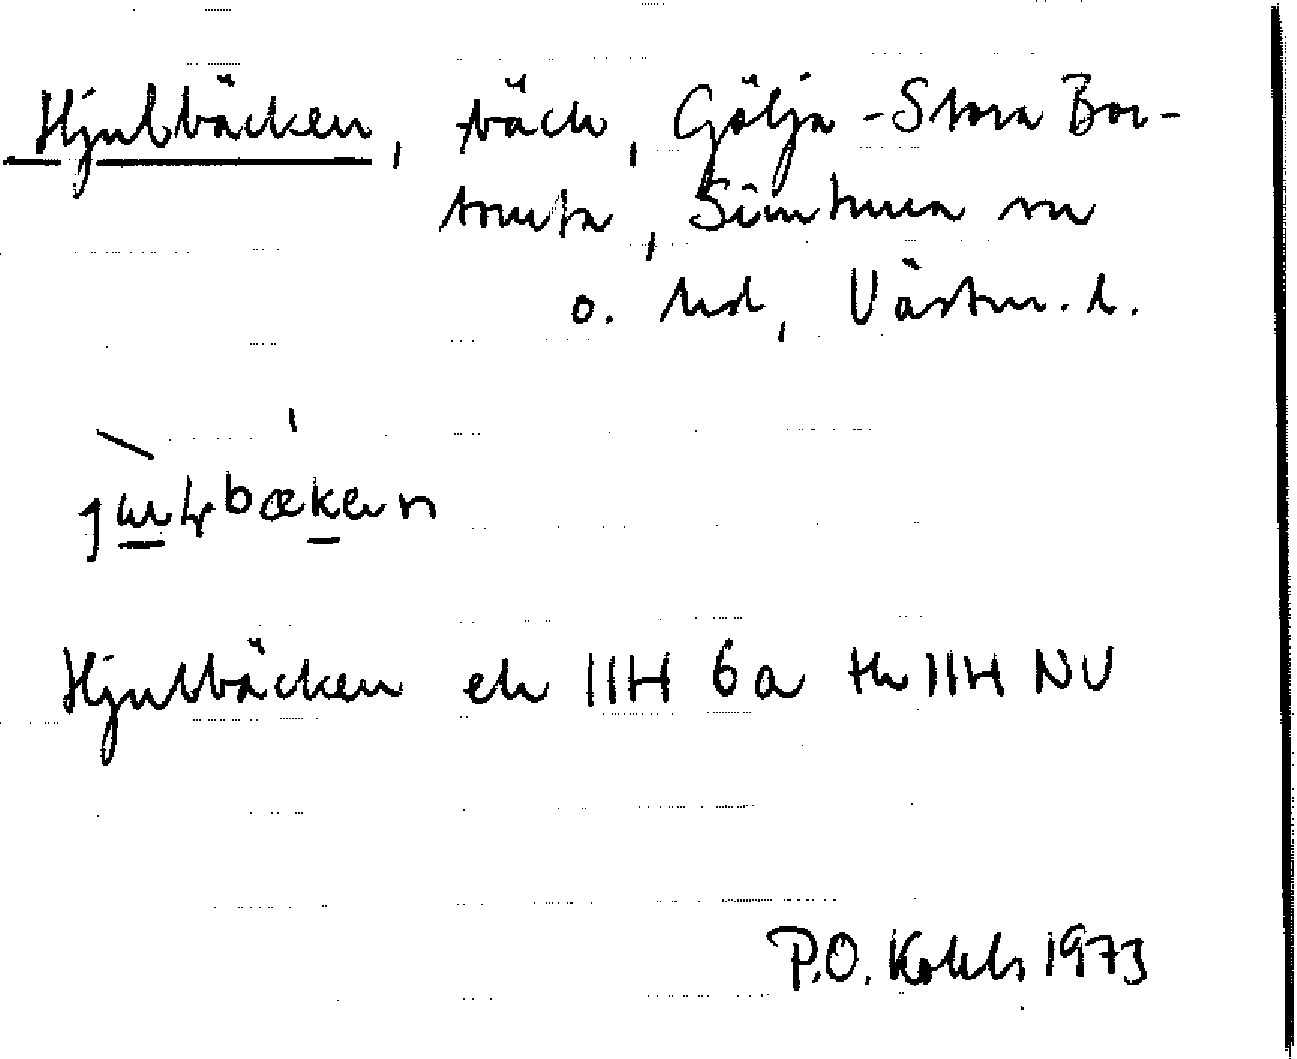 Hjulbäcken, bäck, Gölja - Stora Bor-
tomta, Simtuna sn
o. hd, Västm. l.
Hjulbäcken ek 11H 6a tk 11H NV
P.O. 1973